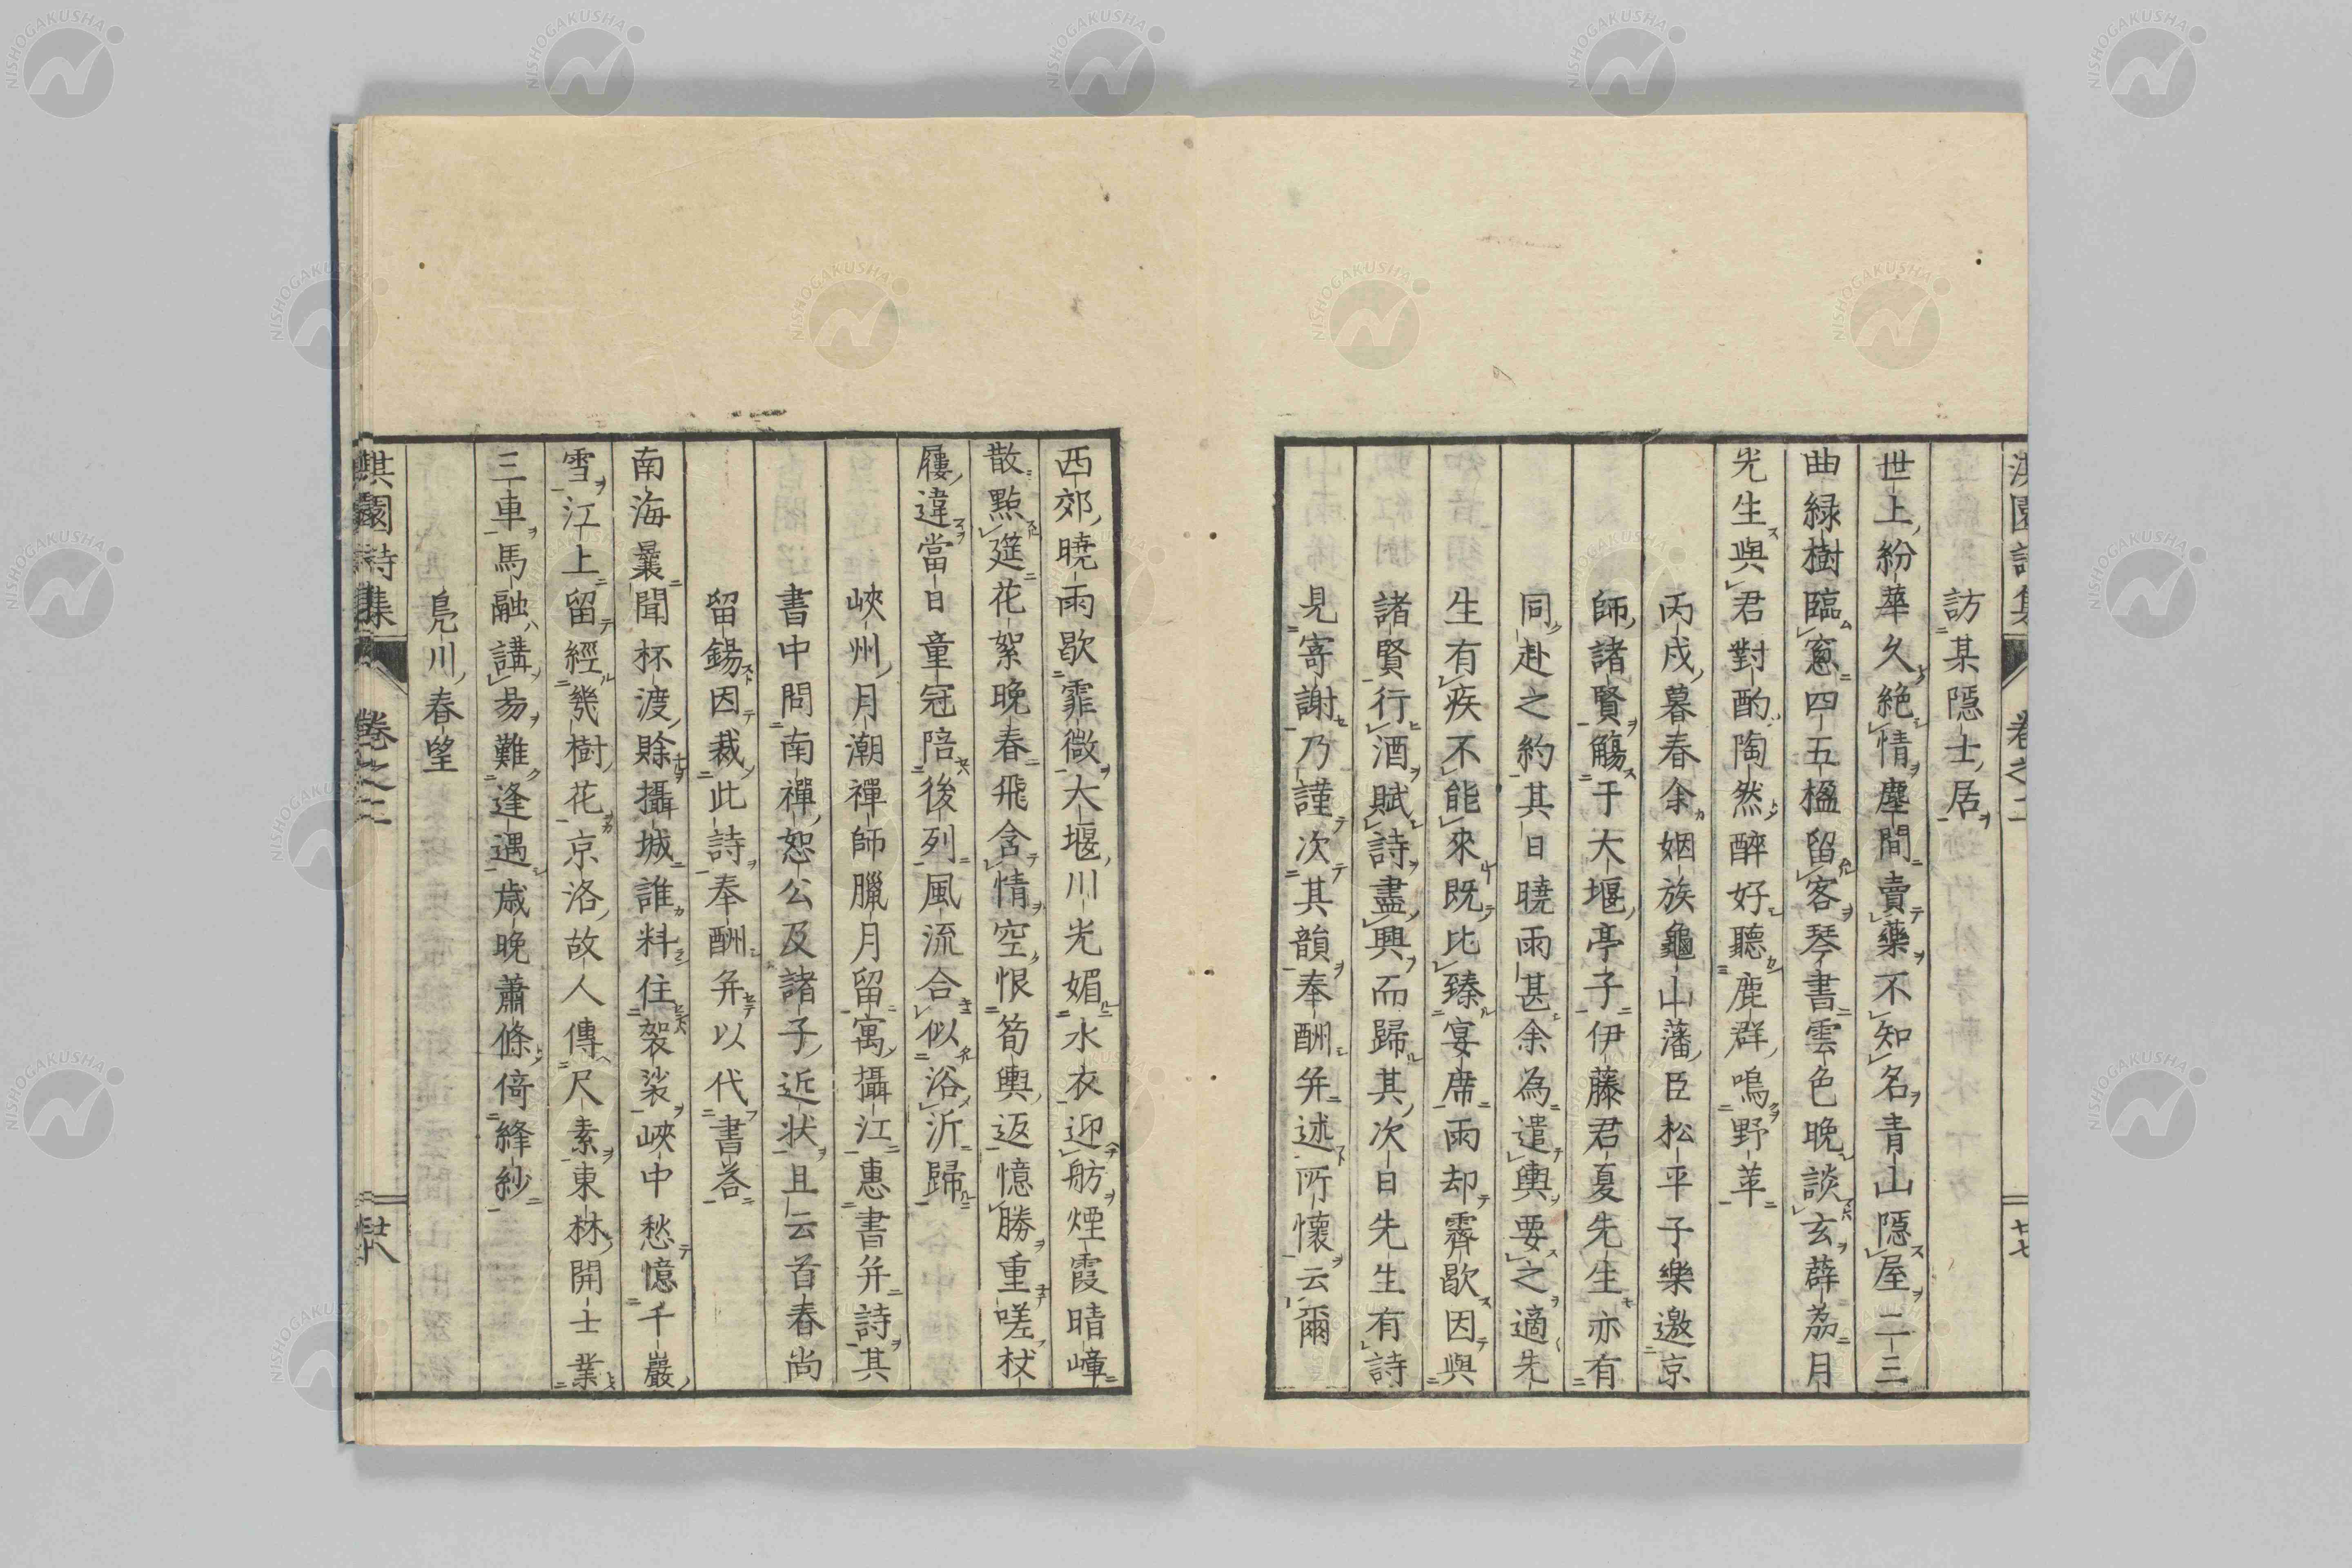 淇園詩集 卷之二 廿七
訪某隱士居
世上紛華久絶情塵間賣藥不知名青山隱屋二三
曲緑樹臨窓四五楹留客琴書雲色晩談玄薜荔月
先生與君對酌陶然醉好聽鹿群鳴野苹
丙戌暮春余姻族龜山藩臣松平子樂邀京
師諸賢觴于大堰亭子伊藤君夏先生亦有
同赴之約其日曉雨甚余為遣輿要之適先
生有疾不能來既比臻宴席雨却霽歇因與
諸賢行酒賦詩盡興而歸其次日先生有詩
見寄謝乃謹次其韻奉酬并述所懷云爾
西郊曉雨歇霏微大堰川光媚水衣迎舫煙霞晴嶂
散點筵花絮晩春飛含情空恨筍輿返憶勝重嗟杖
屨違當日童冠陪後列風流合似浴沂歸
峽州月潮禪師臘月留寓攝江惠書并詩其
書中問南禪恕公及諸子近状且云首春尚
留錫因裁此詩奉酬并以代書荅
南海曩聞杯渡賖攝城誰料住袈裟峽中愁憶千巖
雪江上留經幾樹花京洛故人傳尺素東林開士業
三車馬融講易難逢遇歳晩蕭條倚絳紗
鳧川春望
淇園詩集 卷之二 廿八